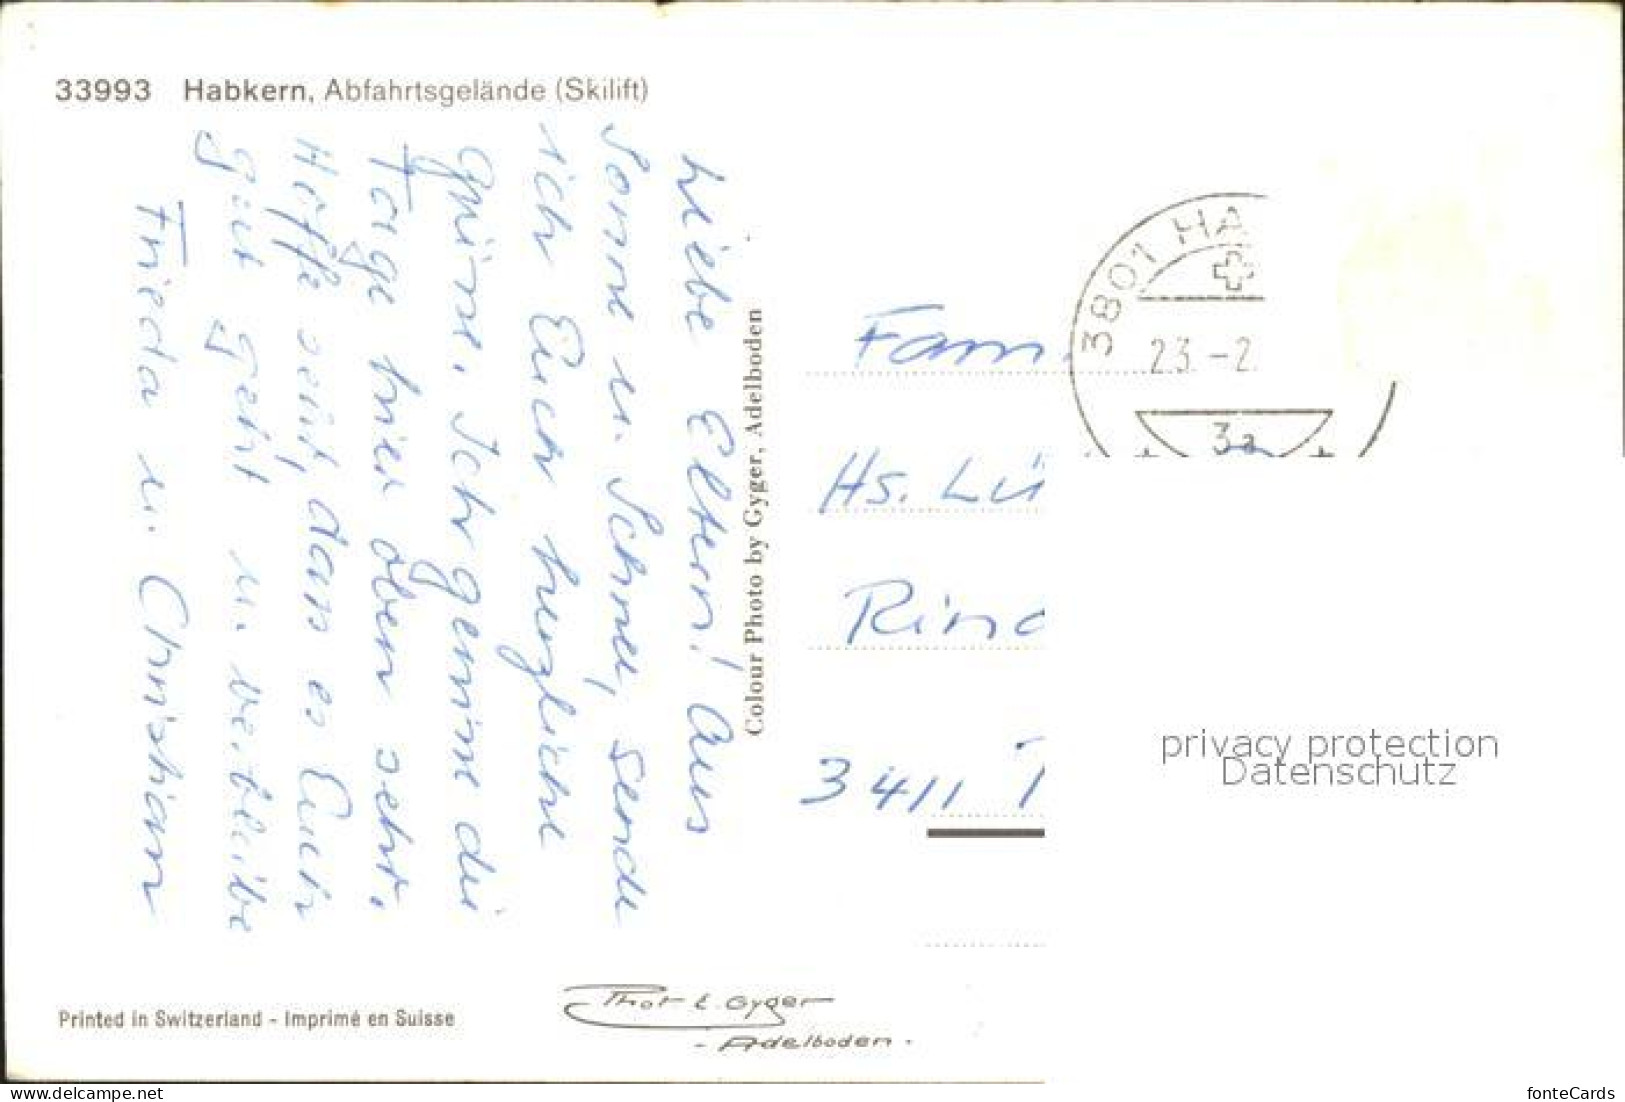 33993 Habkern, Abfahrtsgelände (Skilift)
Liebe Eltern! Aus
Sonne u. Schnee, sende
ich Euch herzliche
Grüsse. Ich geniese die
Tage hier oben sehr.
Hoffe seid, dass es Euch
gut geht u. verbleibe
Frieda u. Christian
Colour Photo by Gyger, Adelboden
3801 HA
23.-2.
3a
Fam.
Hs. Lü
Rin
3411 T
privacy protection
Datenschutz
Printed in Switzerland - Imprimé en Suisse
Phot E. Gyger
- Adelboden -
www.delcampe.net
fonteCards